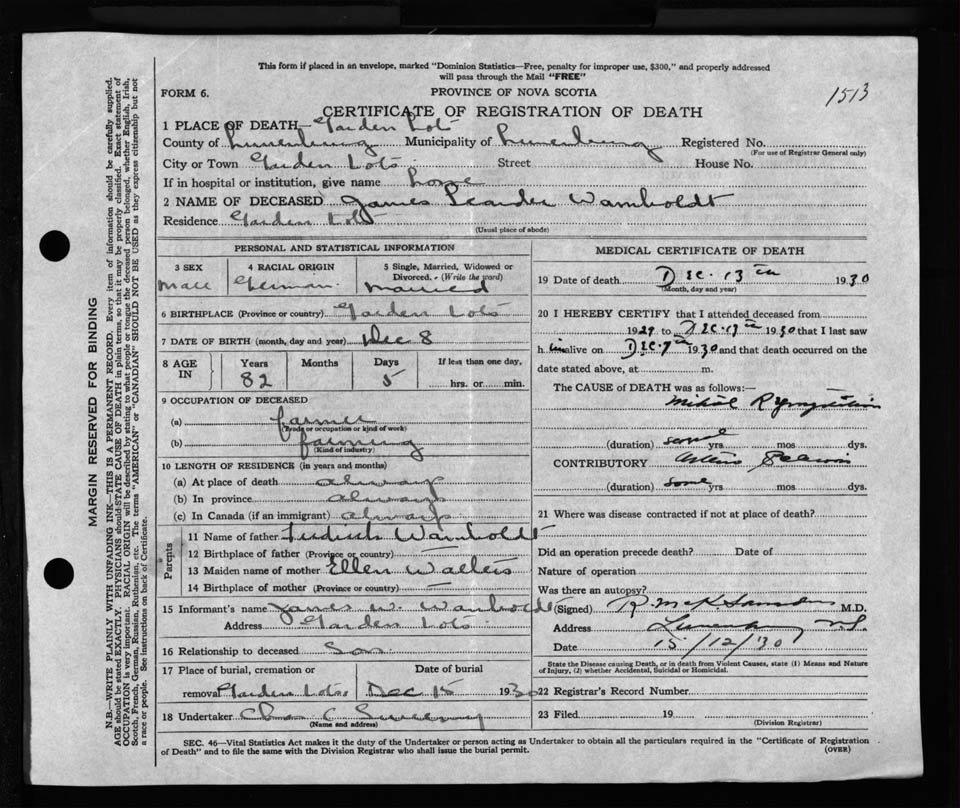 This form if placed in an envelope, marked "Dominion Statistics—Free, penalty for improper use, $300," and properly addressed
will pass through the Mail "FREE"
FORM 6.
PROVINCE OF NOVA SCOTIA
1513
CERTIFICATE OF REGISTRATION OF DEATH
1 PLACE OF DEATH— Garden Lots
County of Lunenburg Municipality of Lunenburg Registered No.
(For use of Registrar General only)
City or Town Garden Lots Street House No.
If in hospital or institution, give name home
2 NAME OF DECEASED James Leander Wamboldt
Residence Garden Lots
(Usual place of abode)
PERSONAL AND STATISTICAL INFORMATION
3 SEX
Male
4 RACIAL ORIGIN
German
5 Single, Married, Widowed or
Divorced. - (Write the word)
Married
6 BIRTHPLACE (Province or country) Garden Lots
7 DATE OF BIRTH (month, day and year) Dec 8
8 AGE
IN
Years
82
Months
Days
5
If less than one day,
hrs. or min.
9 OCCUPATION OF DECEASED
(a) farmer
(Trade or occupation or kind of work)
(b) farming
(Kind of industry)
10 LENGTH OF RESIDENCE (in years and months)
(a) At place of death always
(b) In province always
(c) In Canada (if an immigrant) always
Parents
11 Name of father Wamboldt
12 Birthplace of father (Province or country) —
13 Maiden name of mother Ellen Walters
14 Birthplace of mother (Province or country) —
15 Informant's name James W. Wamboldt
Address Garden Lots
16 Relationship to deceased Son
17 Place of burial, cremation or
removal Garden Lots
Date of burial
Dec 15 1930
18 Undertaker Chas C Sweeny
(Name and address)
MEDICAL CERTIFICATE OF DEATH
19 Date of death Dec. 13th 1930
(Month, day and year)
20 I HEREBY CERTIFY that I attended deceased from
1929 to Dec. 13th 1930 that I last saw
h im alive on Dec. 7th 1930 and that death occurred on the
date stated above, at m.
The CAUSE of DEATH was as follows:—
Mitral Regurgitation
(duration) some yrs mos dys.
CONTRIBUTORY Arterio Sclerosis
(duration) some yrs mos dys.
21 Where was disease contracted if not at place of death?
Did an operation precede death? Date of
Nature of operation
Was there an autopsy?
(Signed) R. McK Saunders M.D.
Address Lunenburg N.S.
Date 15/12/30
State the Disease causing Death, or in death from Violent Causes, state (1) Means and Nature
of Injury, (2) whether Accidental, Suicidal or Homicidal.
22 Registrar's Record Number
23 Filed 19
(Division Registrar)
SEC. 46—Vital Statistics Act makes it the duty of the Undertaker or person acting as Undertaker to obtain all the particulars required in the "Certificate of Registration
of Death" and to file the same with the Division Registrar who shall issue the burial permit.
(OVER)
MARGIN RESERVED FOR BINDING
N.B.—WRITE PLAINLY WITH UNFADING INK—THIS IS A PERMANENT RECORD. Every item of information should be carefully supplied.
AGE should be stated EXACTLY. PHYSICIANS should STATE CAUSE OF DEATH in plain terms, so that it may be properly classified. Exact statement of
OCCUPATION is very important. RACIAL ORIGIN will be described by stating to what people or tongue the deceased person belonged, whether English, Irish,
Scotch, French, German, Russian, Ruthenian, etc. The terms "AMERICAN" or "CANADIAN" SHOULD NOT BE USED as they express citizenship but not
a race or people. See instructions on back of Certificate.